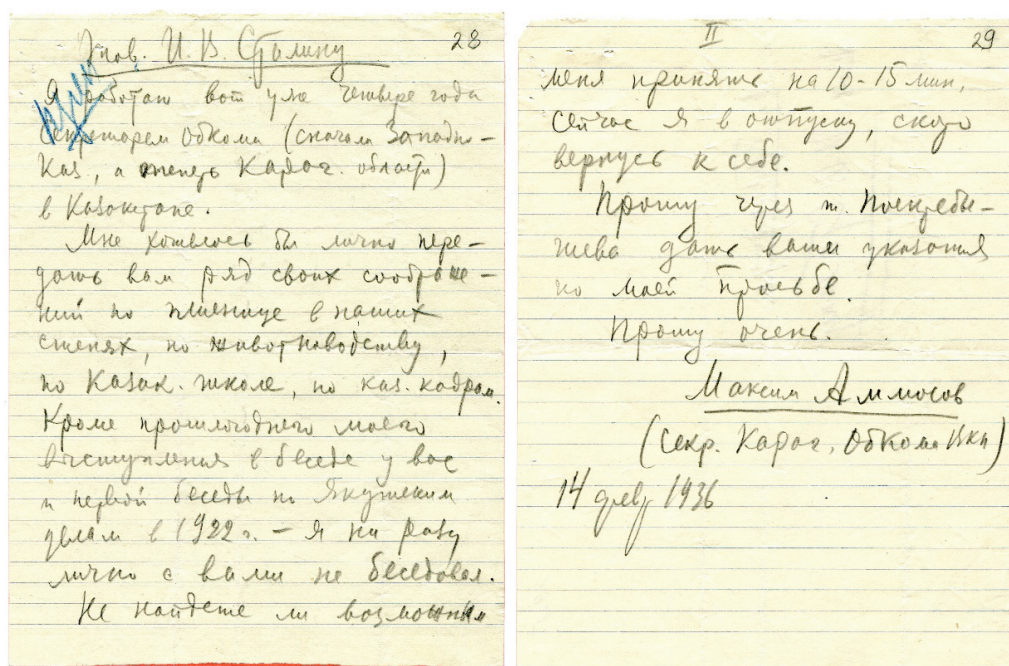 28
Тов. И. В. Сталину
Я работаю вот уже четыре года
секретарем Обкома (сначала Западно-
Каз, а теперь Караг. области)
в Казакстане.
Мне хотелось бы лично пере-
дать вам ряд своих соображе-
ний по пшенице в наших
степях, по животноводству,
по Казак. школе, по каз. кадрам.
Кроме прошлогоднего моего
выступления в беседе у вас
и первой беседы по Якутским
делам в 1922 г. - я ни разу
лично с вами не беседовал.
Не найдете ли возможным
II
29
меня принять на 10-15 мин,
сейчас я в отпуску, скоро
вернусь к себе.
Прошу через т. Поскребы-
шева дать ваши указания
по моей просьбе.
Прошу очень.
Максим Аммосов
(Секр. Караг. Обкома ВКП)
14 февр 1936